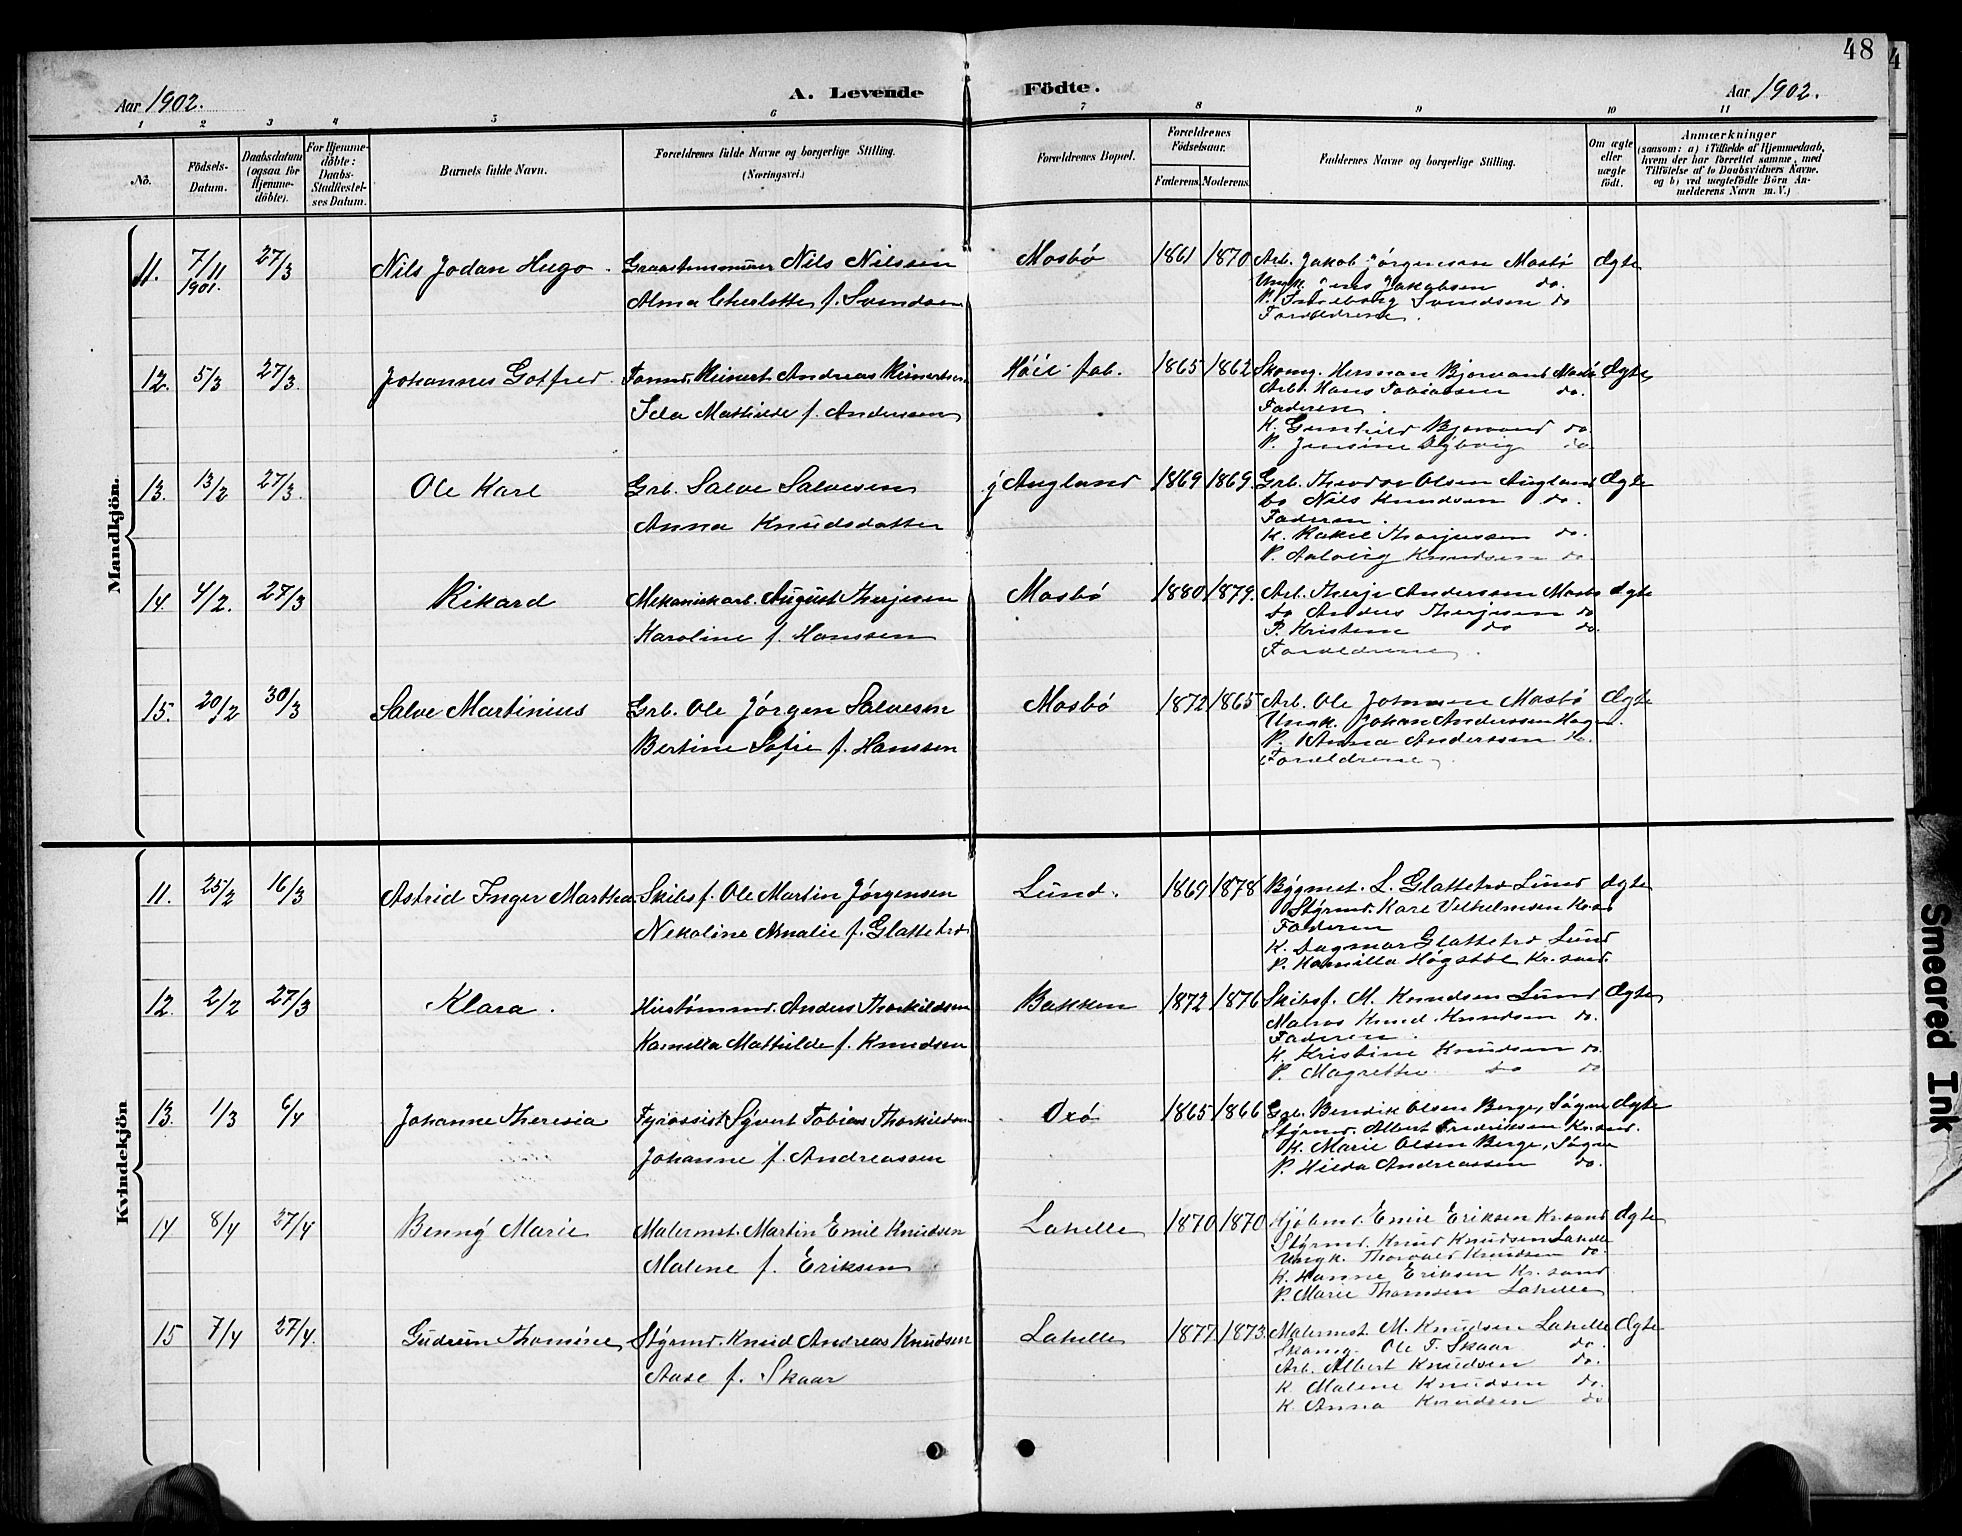 48
Aar 1902.
A. Levende Födte.
Aar 1902.
1 2 3 4 5 6 7 8 9 10 11
No.
Födsels-Datum.
Daabsdatum (ogsaa for Hjemme-döbte).
For Hjemme-döbte: Daabs-Stadfæstel-ses Datum.
Barnets fulde Navn.
Forældrenes fulde Navne og borgerlige Stilling.
(Næringsvei.)
Forældrenes Bopæl.
Forældrenes Födselsaar.
Faderens. Moderens.
Faddernes Navne og borgerlige Stilling.
Om ægte eller uægte födt.
Anmærkninger
(saasom: a) i Tilfælde af Hjemmedaab,
hvem der har forrettet samme, med
Tilföielse af to Daabsvidners Navne.
og b) ved uægtefödte Börn An-
melderens Navn m. V.)
Mandkjön.
11. 7/11 1901. 27/3 Nils Jodan Hugo. Graastensmurer Nils Nilssen Mosbö 1861 1870 Arb. Jakob Jörgensen Mosbö Ægte
Alma Charlotte f. Svendsen Ungk. Jens Jakobsen do.
P. Ingeborg Svendsen do
Forældrene.
12. 5/3 27/3. Johannes Gotfred. Tømmd. Reinert Andreas Reinertsen Höie fab. 1865 1862 Skomg. Herman Bjorvand Mosbö Ægte
Ida Mathilde f. Anderssen Arb. Hans Tobiassen do.
Faderen.
K. Gunhild Bjorvand do
P. Jensine Dybvig do
13. 13/2 27/3. Ole Karl Grb. Salve Salvesen y Augland 1869 1869. Grb. Theodor Olsen Augland Ægte
Anna Knudsdatter do Nils Knudsen do.
Faderen.
K. Rakel Thorjussen do.
P. Aalovig Knudsen do
14. 4/2. 27/3 Rikard Mekanickarb. August Therjesen Mosbö 1880 1879. Arb. Therje Anderssen Mosbö Ægte
Karoline f. Hanssen do Anders Therjesen do
P. Kristine do do.
Forældrene.
15. 20/2 30/3 Salve Martinius Grb. Ole Jörgen Salvesen Mosbö 1872 1865 Arb. Ole Johnsen Mosbö Ægte
Bertine Sofie f. Hanssen Ungk. Johan Anderssen Hagen.
P. Anna Anderssen do.
Forældrene.
Kvindekjön
11. 25/2 16/3 Astrid Inger Marthea. Skibsf. Ole Martin Jörgensen Lund. 1869 1878 Bygmst. L. Glattetre Lund Ægte
Nekoline Amalie f. Glattetre Styrmd. Karl Vilhelmsen Kr.sd
Faderen
K. Dagmar Glattetre Lund
P. Kamilla Högstöl Kr.sand.
12. 2/2 27/3 Klara. Anders Thorkildsen Bakken 1872 1876 Skibsf. M. Knudsen Lund Ægte
Kamilla Mathilde f. Knudsen Matros Knud Knudsen do.
Faderen.
K. Kristine Knudsen do.
P. Magrethe do do
13. 1/3 6/4 Johanne Theresia Fyrassist. Syvert Tobias Thorkildsen Oxö 1865 1866 Grb. Bendik Olsen Berge, Sögne Ægte
Johanne f. Andreassen Styrmd. Albert Fredriksen Kr.sand.
K. Marie Olsen Berge, Sögne
P. Hilda Andreassen do.
14 8/4 27/4 Benny Marie Malermst. Martin Emil Knudsen Lahelle 1870 1870 Kjöbmd. Emil Eriksen Kr.sand Ægte
Malene f. Eriksen Styrmd. Knud Knudsen Lahelle
Ungk. Thorvald Knudsen do.
K. Hanne Eriksen Kr.sand
P. Marie Thomsen Lahelle
15 7/4 27/4. Gudrun Thomine Styrmd. Knud Andreas Knudsen Lahelle 1877 1873. Malermst. M. Knudsen Lahelle Ægte
Aase f. Skaar Skomg. Ole T. Skaar do.
Arb. Albert Knudsen do.
K. Malene Knudsen do.
K. Anna Knudsen do
Smeared Ink